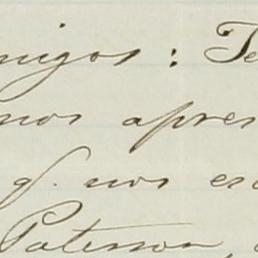 migos: Te
mos apres
q. nos es
Paterson,